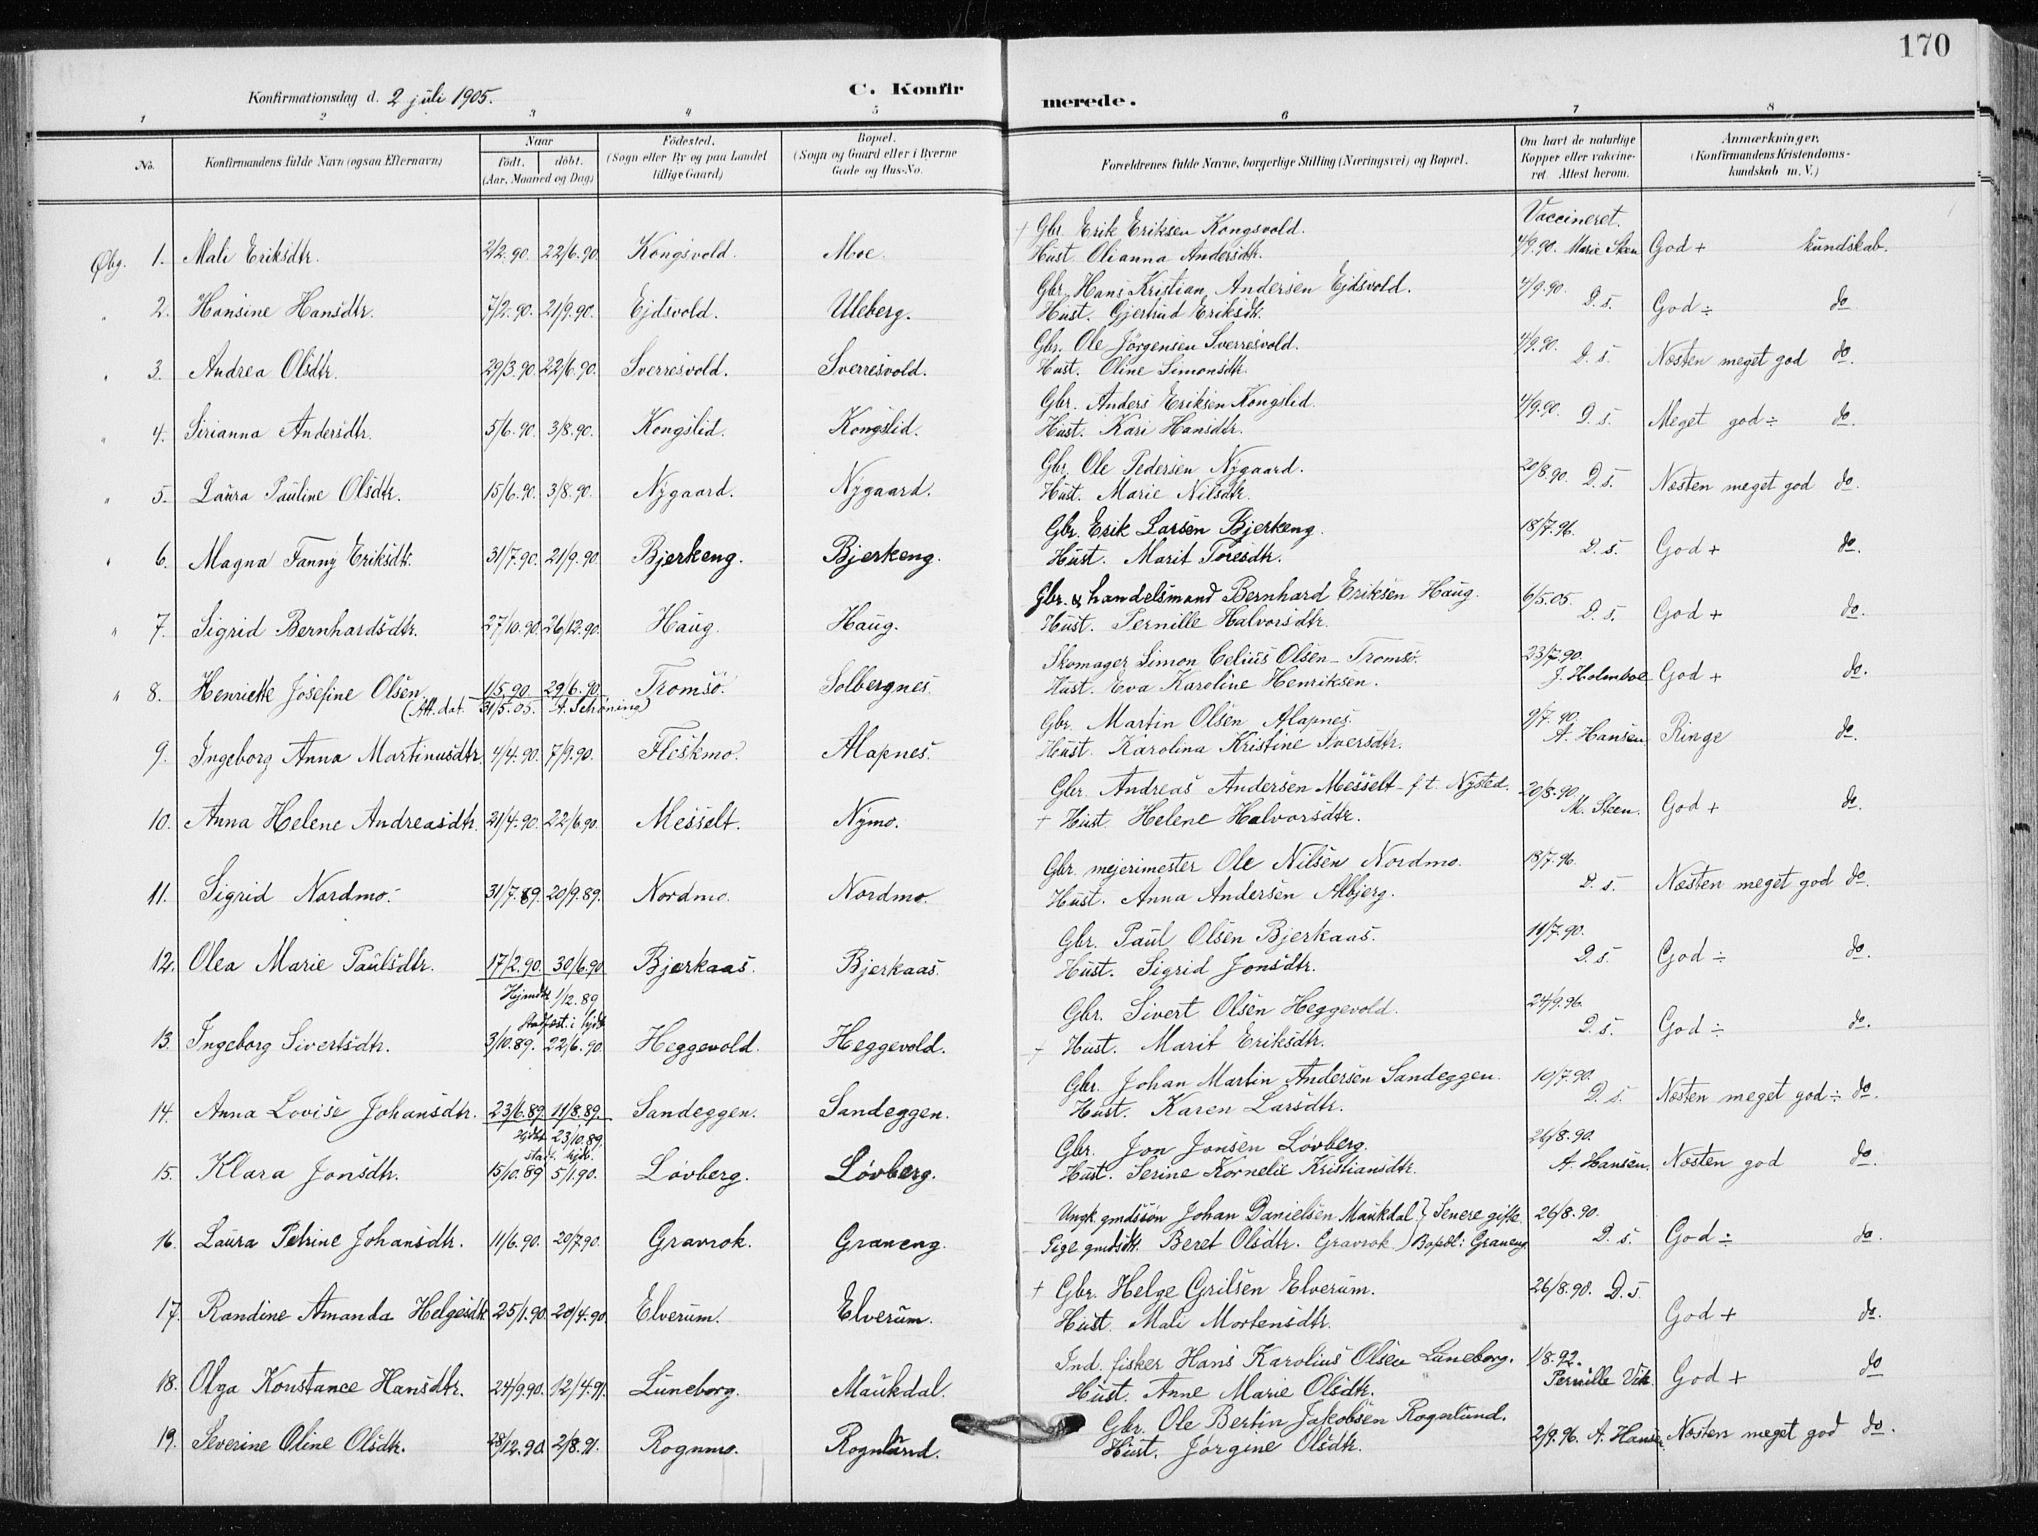 170
Konfirmationsdag d. 2 juli 1905. C. Konfirmerede.
1 2 3 4 5 6 7 8
No. Konfirmandens fulde Navn (ogsaa Efternavn) Naar født. døbt. (Aar, Maaned og Dag) Fødested. (Sogn eller By og paa Landet tillige Gaard) Bopæl. (Sogn og Gaard eller i Byerne Gade og Hus-No. Forældrenes fulde Navne, borgerlige Stilling (Næringsvei) og Bopæl. Om havt de naturlige Kopper eller vaccineret. Attest herom. Anmærkninger. (Konfirmandens Kristendomskundskab m. V.)
+ Gbr. Erik Eriksen Kongsvold. Vaccineret.
Øbg. 1. Mali Eriksdtr. 2/2.90. 22/6.90. Kongsvold. Moe. Hust. Olianna Andersdtr. 4/9.90. Marie Steen God + kundskab.
Gbr. Hans Kristian Andersen Ejdsvold. 4/9.90.
" 2. Hansine Hansdtr. 7/2.90. 21/9.90. Ejdsvold. Uleberg. Hust. Gjertrud Eriksdtr. D. s. God ÷ do
Gbr. Ole Jørgensen Sverresvold. 4/9.90.
" 3. Andrea Olsdtr. 29/3.90. 22/6.90. Sverresvold. Sverresvold. Hust. Oline Simonsdtr. D. s. Næsten meget god do.
Gbr. Anders Eriksen Kongslid. 4/9.90.
" 4. Sirianna Andersdtr. 5/6.90. 3/8.90. Kongslid. Kongslid. Hust. Kari Hansdtr. D. s. Meget god ÷ do.
Gbr. Ole Pedersen Nygaard. 20/8.90.
" 5. Laura Pauline Olsdtr. 15/6.90. 3/8.90. Nygaard. Nygaard. Hust. Marie Nilsdtr. D. s. Næsten meget god do.
Gbr. Erik Larsen Bjerkeng. 18/7.96.
" 6. Magna Fanny Eriksdtr. 31/7.90. 21/9.90. Bjerkeng. Bjerkeng. Hust. Marit Toresdtr. D. s. God + do.
Gbr. & handelsmand Bernhard Eriksen Haug. 6/5.05.
" 7. Sigrid Bernhardsdtr. 27/10.90. 26/12.90. Haug. Haug. Hust. Pernille Halvorsdtr. D. s. God + do.
Skomager Simon Celius Olsen - Tromsø. 23/7.90.
" 8. Henriette Josefine Olsen 1/5.90. 29/6.90. Tromsø. Solbergnes. Hust. Eva Karoline Henriksen. J. Holmboe God + do.
(Att. dat. 31/5.05. A. Schöning)
Gbr. Martin Olsen Alapnes. 9/7.90.
9. Ingeborg Anna Martinusdtr. 4/4.90. 7/9.90. Fleskmo. Alapnes. Hust. Karolina Kristine Iversdtr. A. Hansen Ringe do.
Gbr. Andreas Andersen Messelt - f. t. Nysted. 20/8.90.
10. Anna Helene Andreasdtr. 21/4.90. 22/6.90. Messelt. Nymo. + Hust. Helene Halvorsdtr. M. Steen. God + do.
Gbr. mejerimester Ole Nilsen Nordmo. 18/7.96.
11. Sigrid Nordmo. 31/7.89. 20/9.89. Nordmo. Nordmo. Hust. Anna Andersen Akbjerg. D. s. Næsten meget god do.
Gbr. Paul Olsen Bjerkaas. 11/7.90.
12. Olea Marie Paulsdtr. 17/2.90. 30/6.90. Bjerkaas. Bjerkaas. Hust. Sigrid Jonsdtr. D. s. God ÷ do.
Hjmdt. 1/12.89
Gbr. Sivert Olsen Heggevold. 24/9.96.
Stadfæst. i kjdt
13. Ingeborg Sivertsdtr. 3/10.89. 22/6.90. Heggevold. Heggevold. + Hust. Marit Eriksdtr. D. s. God ÷ do.
Gbr. Johan Martin Andersen Sandeggen. 10/7.90.
14. Anna Lovise Johansdtr. 23/6.89. 11/8.89. Sandeggen. Sandeggen. Hust. Karen Larsdtr. D. s. Næsten meget god ÷ do.
23/10.89.
Gbr. Jon Jonsen Løvberg. 26/8.90.
15. Klara Jonsdtr. 15/10.89 5/1.90. Løvberg. Løvberg. Hust. Serine Kornelie Kristiansdtr. A. Hansen. Næsten god do.
Ungk. gmdssøn Johan Danielsen Maukdal } Senere gifte. 26/8.90.
16. Laura Petrine Johansdtr. 11/6.90. 20/7.90. Gravrok. Graneng. Pige gmdsdtr. Beret Olsdtr. Gravrok } Bopæl: Graneng D. s. God ÷ do.
+ Gbr. Helge Grilsen Elverum. 26/8.90. D. s.
17. Randine Amanda Helgesdtr. 25/1.90. 20/4.90. Elverum. Elverum. Hust. Mali Mortensdtr. God + do.
Ind. fisker Hans Karolius Olsen Luneborg. 1/8.92.
18. Olga Konstance Hansdtr. 24/9.90. 12/4.91. Luneborg. Maukdal. Hust. Anne Marie Olsdtr. Pernille Vik. God + do
Gbr. Ole Bertin Jakobsen Rognlund.
19. Severine Oline Olsdtr. 28/12.90. 2/8.91. Rognmo. Rognlund. Hust. Jørgine Olsdtr. 2/9.96. A. Hansen Næsten meget god do.